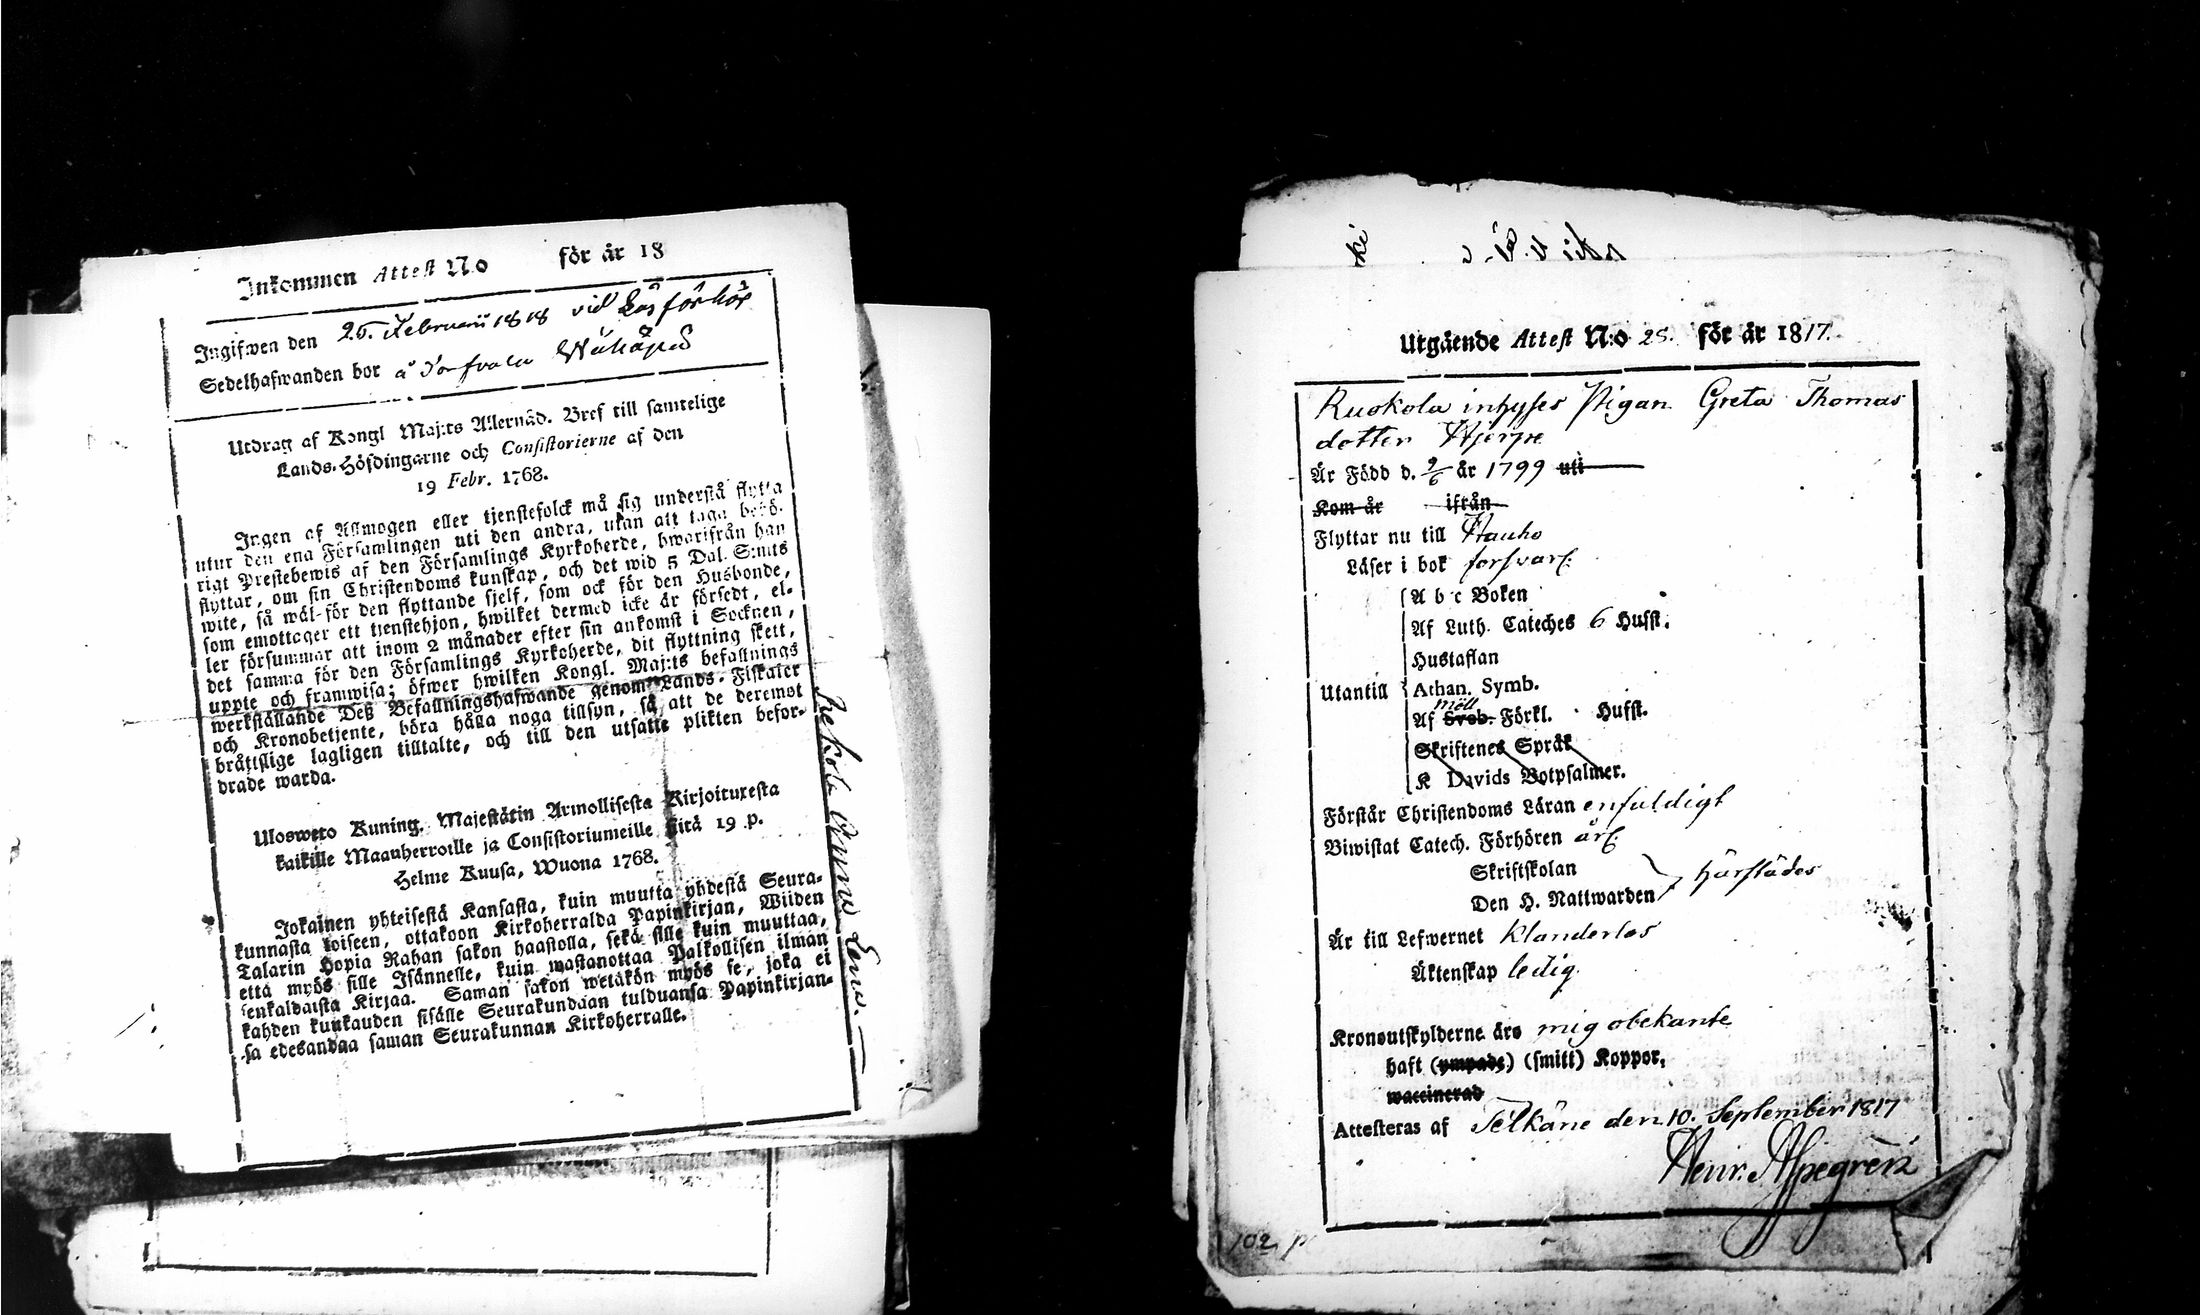 Inkommen Attest No för år 18
Ingifwen den 26. Februarii 1818 vid Läsförhör
Sedelhafwanden bor å
Utdrag af Kongl Maj:ts Allernåd. Bref till samtelige
Lands-Höfdingarne och Consistorierne af den
19 Febr. 1768.
Ingen af Allmogen eller tjenstefolck må sig understå flytta
utur den ena Församlingen uti den andra, utan att taga behö-
rigt Prestebewis af den Församlings Kyrkoherde, hwarifrån han
flyttar, om sin Christendoms kunskap, och det wid 5 Dal. S:mts
wite, så wäl för den flyttande sjelf, som ock för den Husbonde,
som emottager ett tjenstehjon, hwilket dermed icke är försedt, el-
ler försummar att inom 2 månader efter sin ankomst i Socknen,
det samma för den Församlings Kyrkoherde, dit flyttning skett,
uppte och framwisa; öfwer hwilken Kongl. Maj:ts befallnings
werkställande Deß Befallningshafwande genom Lands-Fiskaler
och Kronobetjente, böra hålla noga tillsyn, så att de deremot
bråttslige lagligen tilltalte, och till den utsatte plikten befor-
drade warda.
Ulosweto Kuning. Majestätin Armollisesta Kirjoituxesta
kaikille Maanherroille ja Consistoriumeille sitä 19 p.
Helme Kuusa, Wuona 1768.
Jokainen yhteisestä Kansasta, kuin muutta yhdestä Seura-
kunnasta toiseen, ottakoon Kirkoherralda Papinkirjan, Wiiden
Talarin Hopia Rahan sakon haastolla, sekä sille kuin muuttaa,
että myös sille Isännelle, kuin wastanottaa Palkollisen ilman
senkaldaista Kirjaa. Saman sakon wetäkön myös se, joka ei
kahden kuukauden sisälle Seurakundaan tulduansa Papinkirjan-
sa edesandaa saman Seurakunnan Kirkoherralle.
Utgående Attest N:o 28. för år 1817.
Ruokola inhyses Pigan Greta Thomas
dotter Hjerpe
Är Född d. 2/6 år 1799 uti
Kom år ifrån
Flyttar nu till Hauho
Läser i bok forsvarl:
A b c Boken
Af Luth. Cateches 6 Hufst.
Hustaflan
Utantill Athan. Symb.
möll
Af Sveb. Förkl. Hufst.
Skriftenes Språk
K Davids Botpsalmer.
Förstår Christendoms Läran enfaldigt
Biwistat Catech. Förhören årl.
Skriftskolan
Den H. Nattwarden härstädes
Är till Lefwernet klanderlös
Äktenskap ledig.
Kronoutskylderne äro mig obekante
haft (ympade) (smitt) Koppor,
waccinerad
Attesteras af Pelkäne den 10. September 1817
Henr. Aspegren
102 p